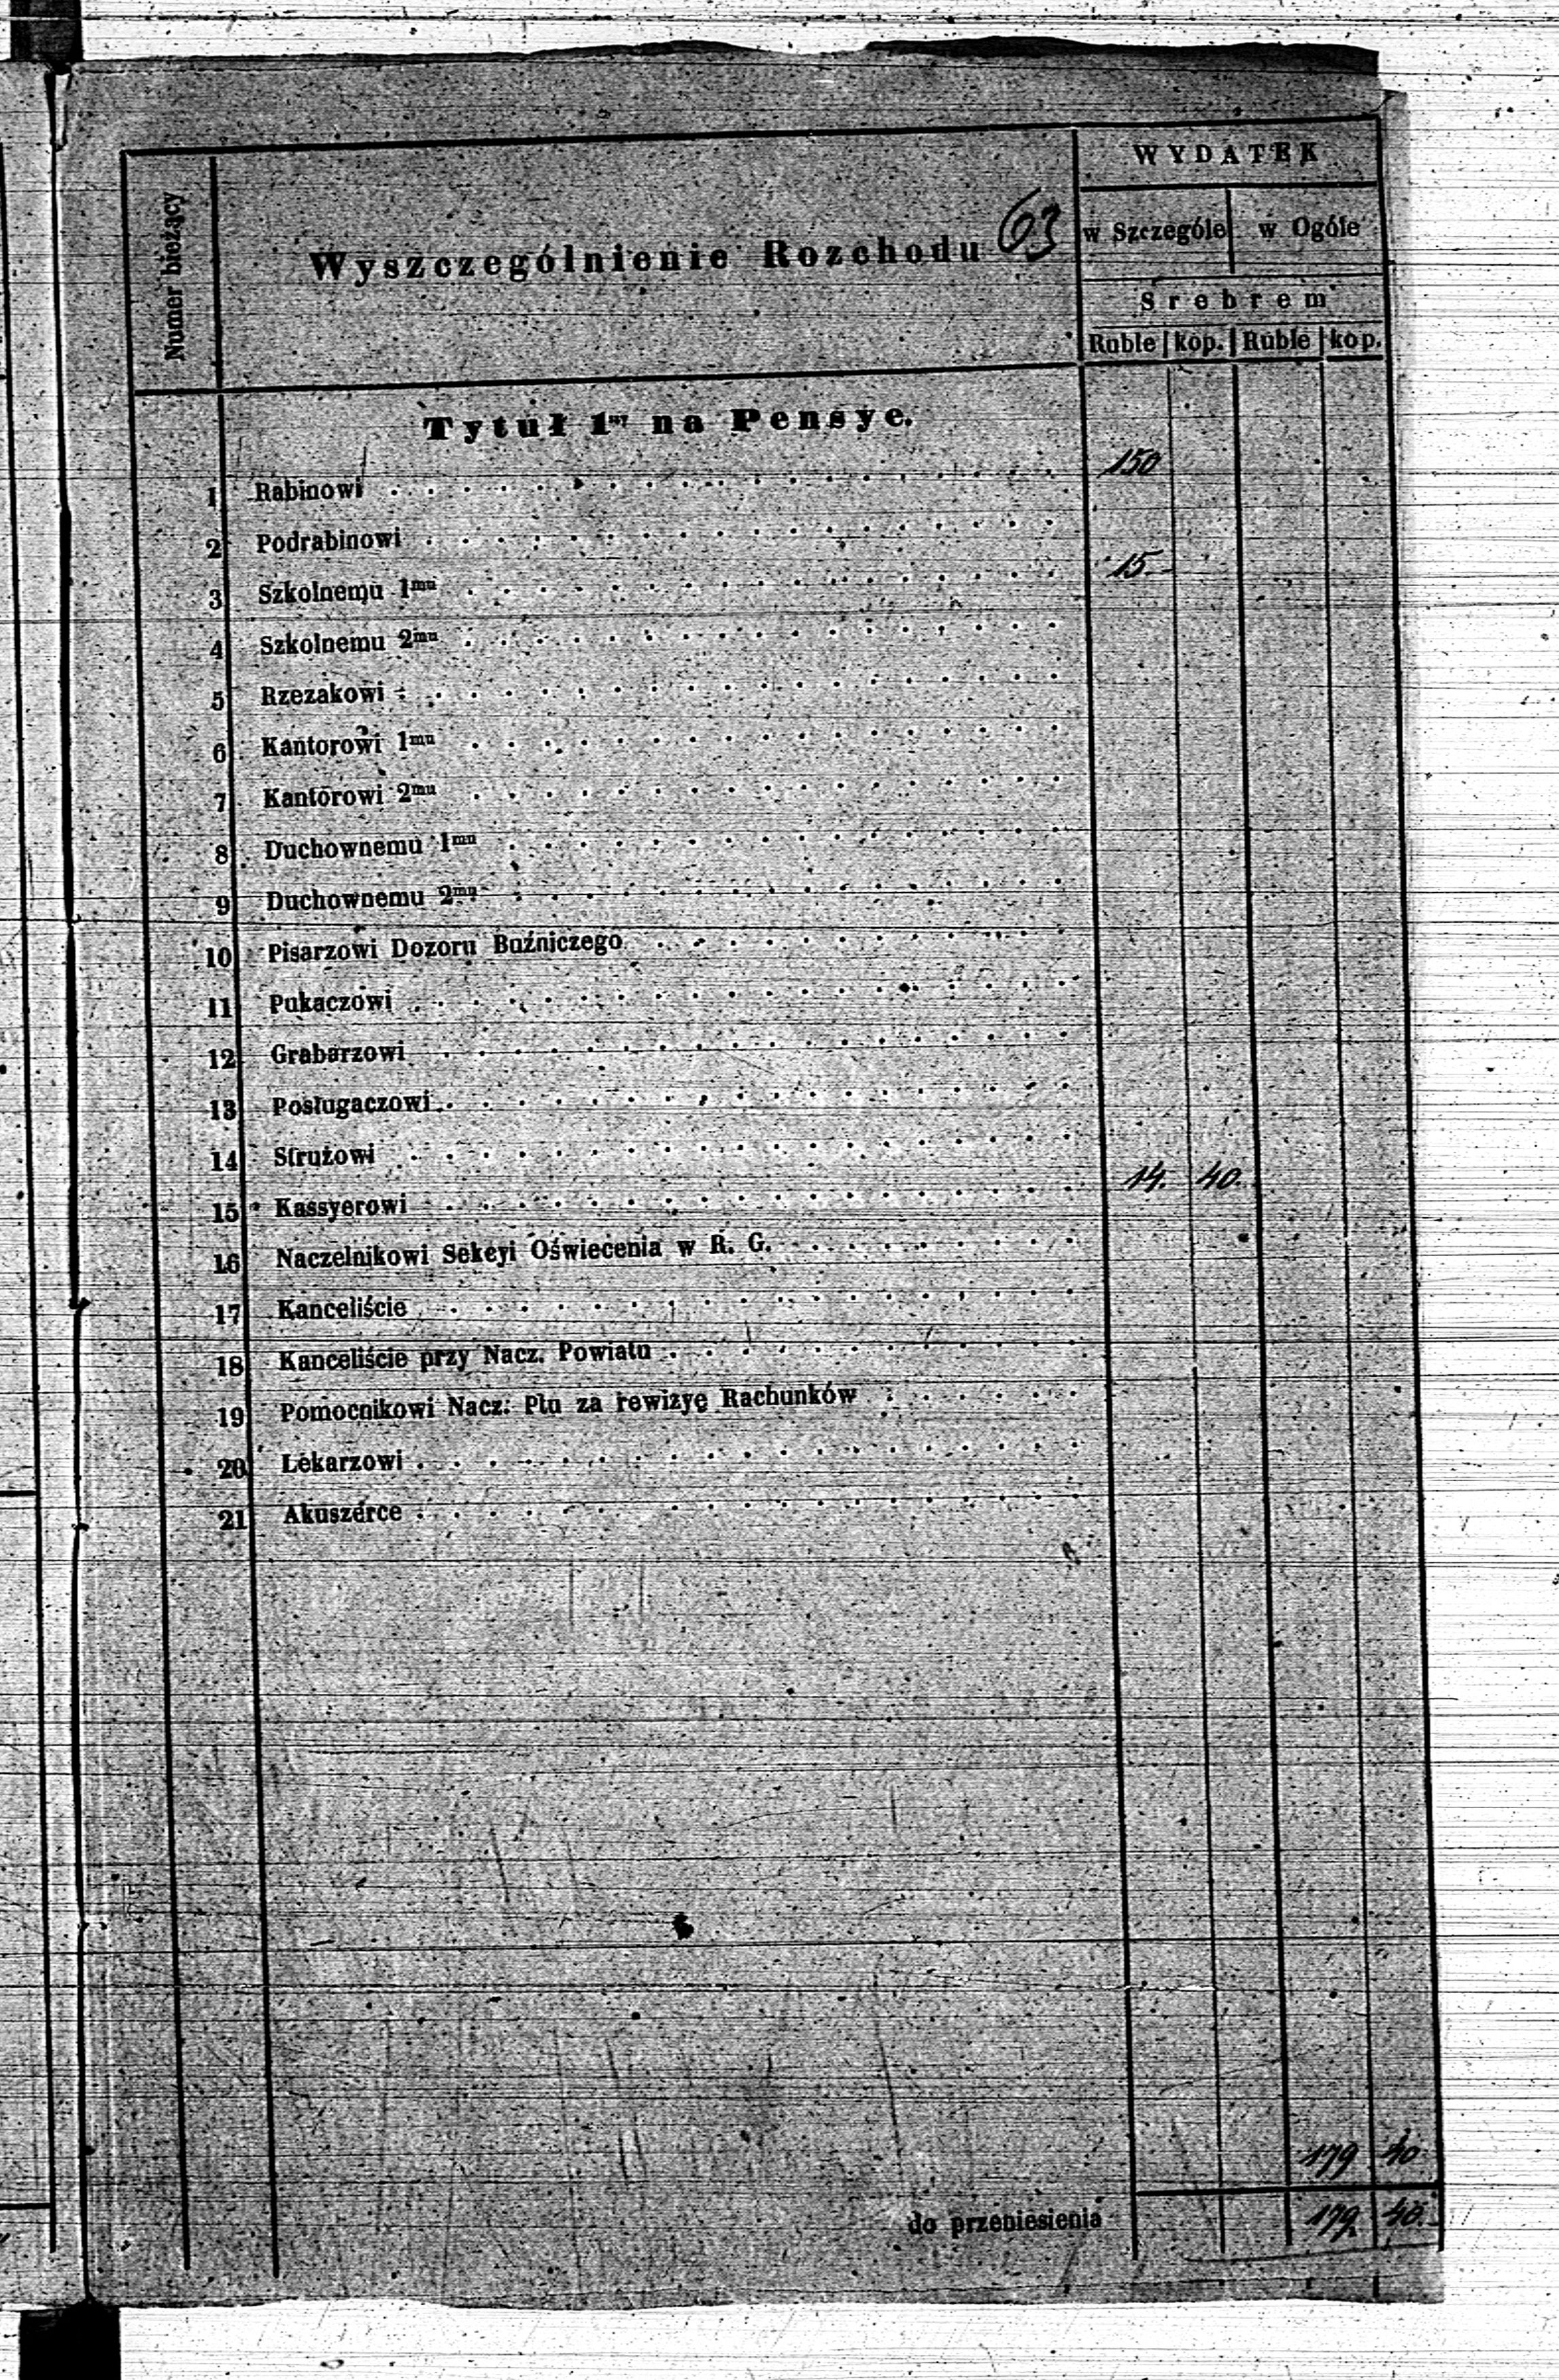 WYDATEK
Numer bieżący
Wyszczególnienie Rozchodu 63
w Szczególe w Ogóle
Srebrem
Ruble kop. Ruble kop.
Tytuł 1szy na Pensye.
1 Rabinowi 150
2 Podrabinowi
3 Szkolnemu 1mu 15.-
4 Szkolnemu 2mu
5 Rzezakowi
6 Kantorowi 1mu
7 Kantorowi 2mu
8 Duchownemu 1mu
9 Duchownemu 2mu
10 Pisarzowi Dozoru Bużniczego
11 Pukaczowi
12 Grabarzowi
13 Posługaczowi
14 Stróżowi
15 Kassyerowi 14. 40.
16 Naczelnikowi Sekcyi Oświecenia w R. G.
17 Kanceliście
18 Kanceliście przy Nacz. Powiatu
19 Pomocnikowi Nacz: Ptu za rewizyę Rachunków
20 Lekarzowi
21 Akuszerce
179 40
do przeniesienia 179. 40.-